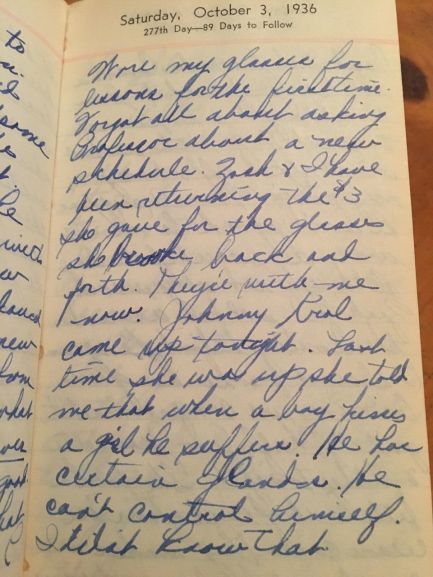 to
some
new
what
Saturday, October 3, 1936
277th Day—89 Days to Follow
Wore my glasses for
lessons for the first time.
Forgot all about asking
Professor about a new
schedule. Zosh & I have
been returning the $3
she gave for the glasses
she broke back and
forth. They're with me
now. Johnny Krol
came up tonight. Last
time she was up she told
me that when a boy kisses
a girl he suffers. He has
certain glands. He
can't control himself.
I didn't know that